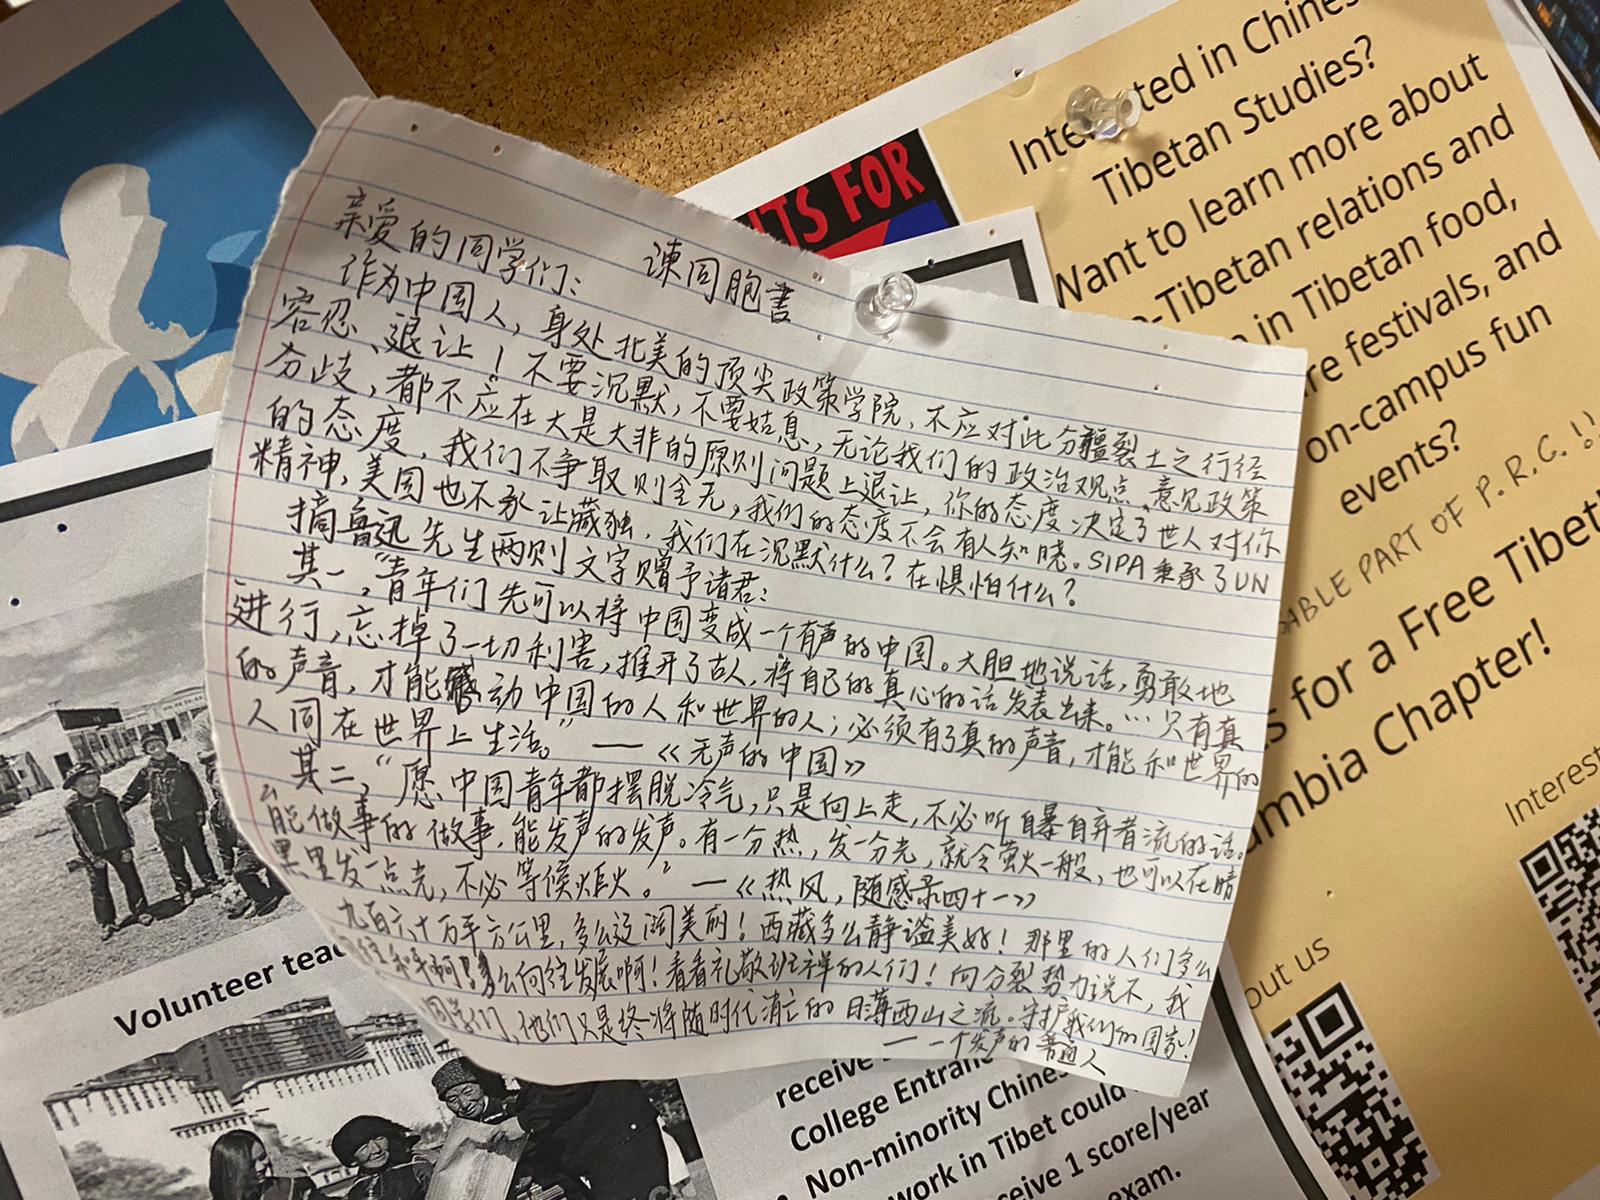 谏同胞書
亲爱的同学们：
作为中国人，身处北美的顶尖政策学院，不应对此分疆裂土之行径
容忍、退让！不要沉默，不要姑息，无论我们的政治观点、意见政策
分歧，都不应在大是大非的原则问题上退让，你的态度决定了世人对你
的态度，我们不争取则全无，我们的态度不会有人知晓。SIPA秉承了UN
精神，美国也不承认藏独，我们在沉默什么？在惧怕什么？
摘鲁迅先生两则文字赠予诸君：
其一，“青年们先可以将中国变成一个有声的中国。大胆地说话，勇敢地
进行，忘掉了一切利害，推开了古人，将自己的真心的话发表出来。…只有真
的声音，才能感动中国的人和世界的人；必须有了真的声音，才能和世界的
人同在世界上生活。”——《无声的中国》
其二，“愿中国青年都摆脱冷气，只是向上走，不必听自暴自弃者流的话。
能做事的做事，能发声的发声。有一分热，发一分光，就令萤火一般，也可以在暗
黑里发一点光，不必等候炬火。”——《热风，随感录四十一》
九百六十万平方公里，多么辽阔美丽！西藏多么静谧美好！那里的人们多么
和平啊！多么向往发展啊！看看礼敬班禅的人们！向分裂势力说不，我
同学们，他们只是终将随时代消亡的日薄西山之流。守护我们的国家！
——一个发声的普通人
TS FOR
Inte ted in Chines
Tibetan Studies?
Want to learn more about
-Tibetan relations and
in Tibetan food,
re festivals, and
on-campus fun
events?
ABLE PART OF P.R.C.!!
s for a Free Tibet
umbia Chapter!
Interest
out us
Volunteer tea
receive
College Entran
Non-minority Chines
work in Tibet could
ceive 1 score/year
exam.